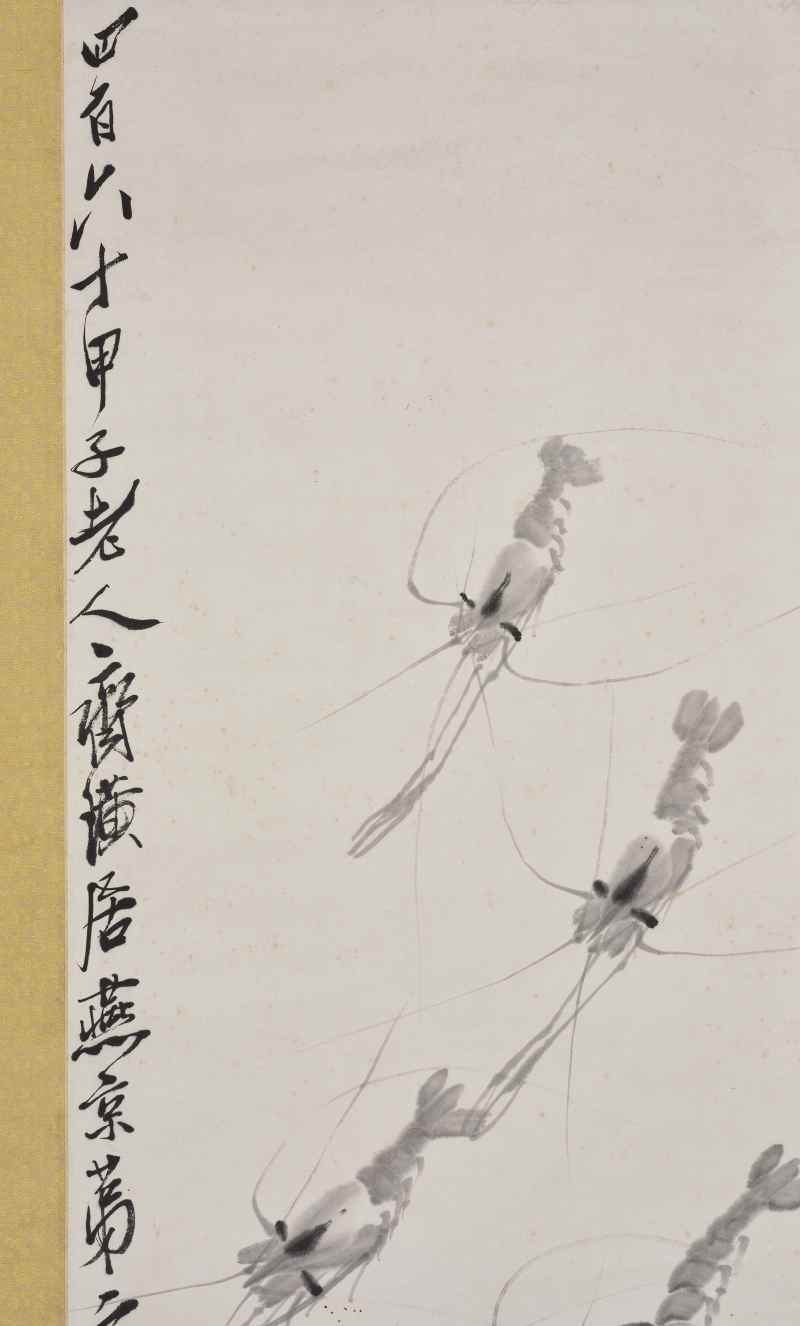 四百六十甲子老人齊璜居燕京第二